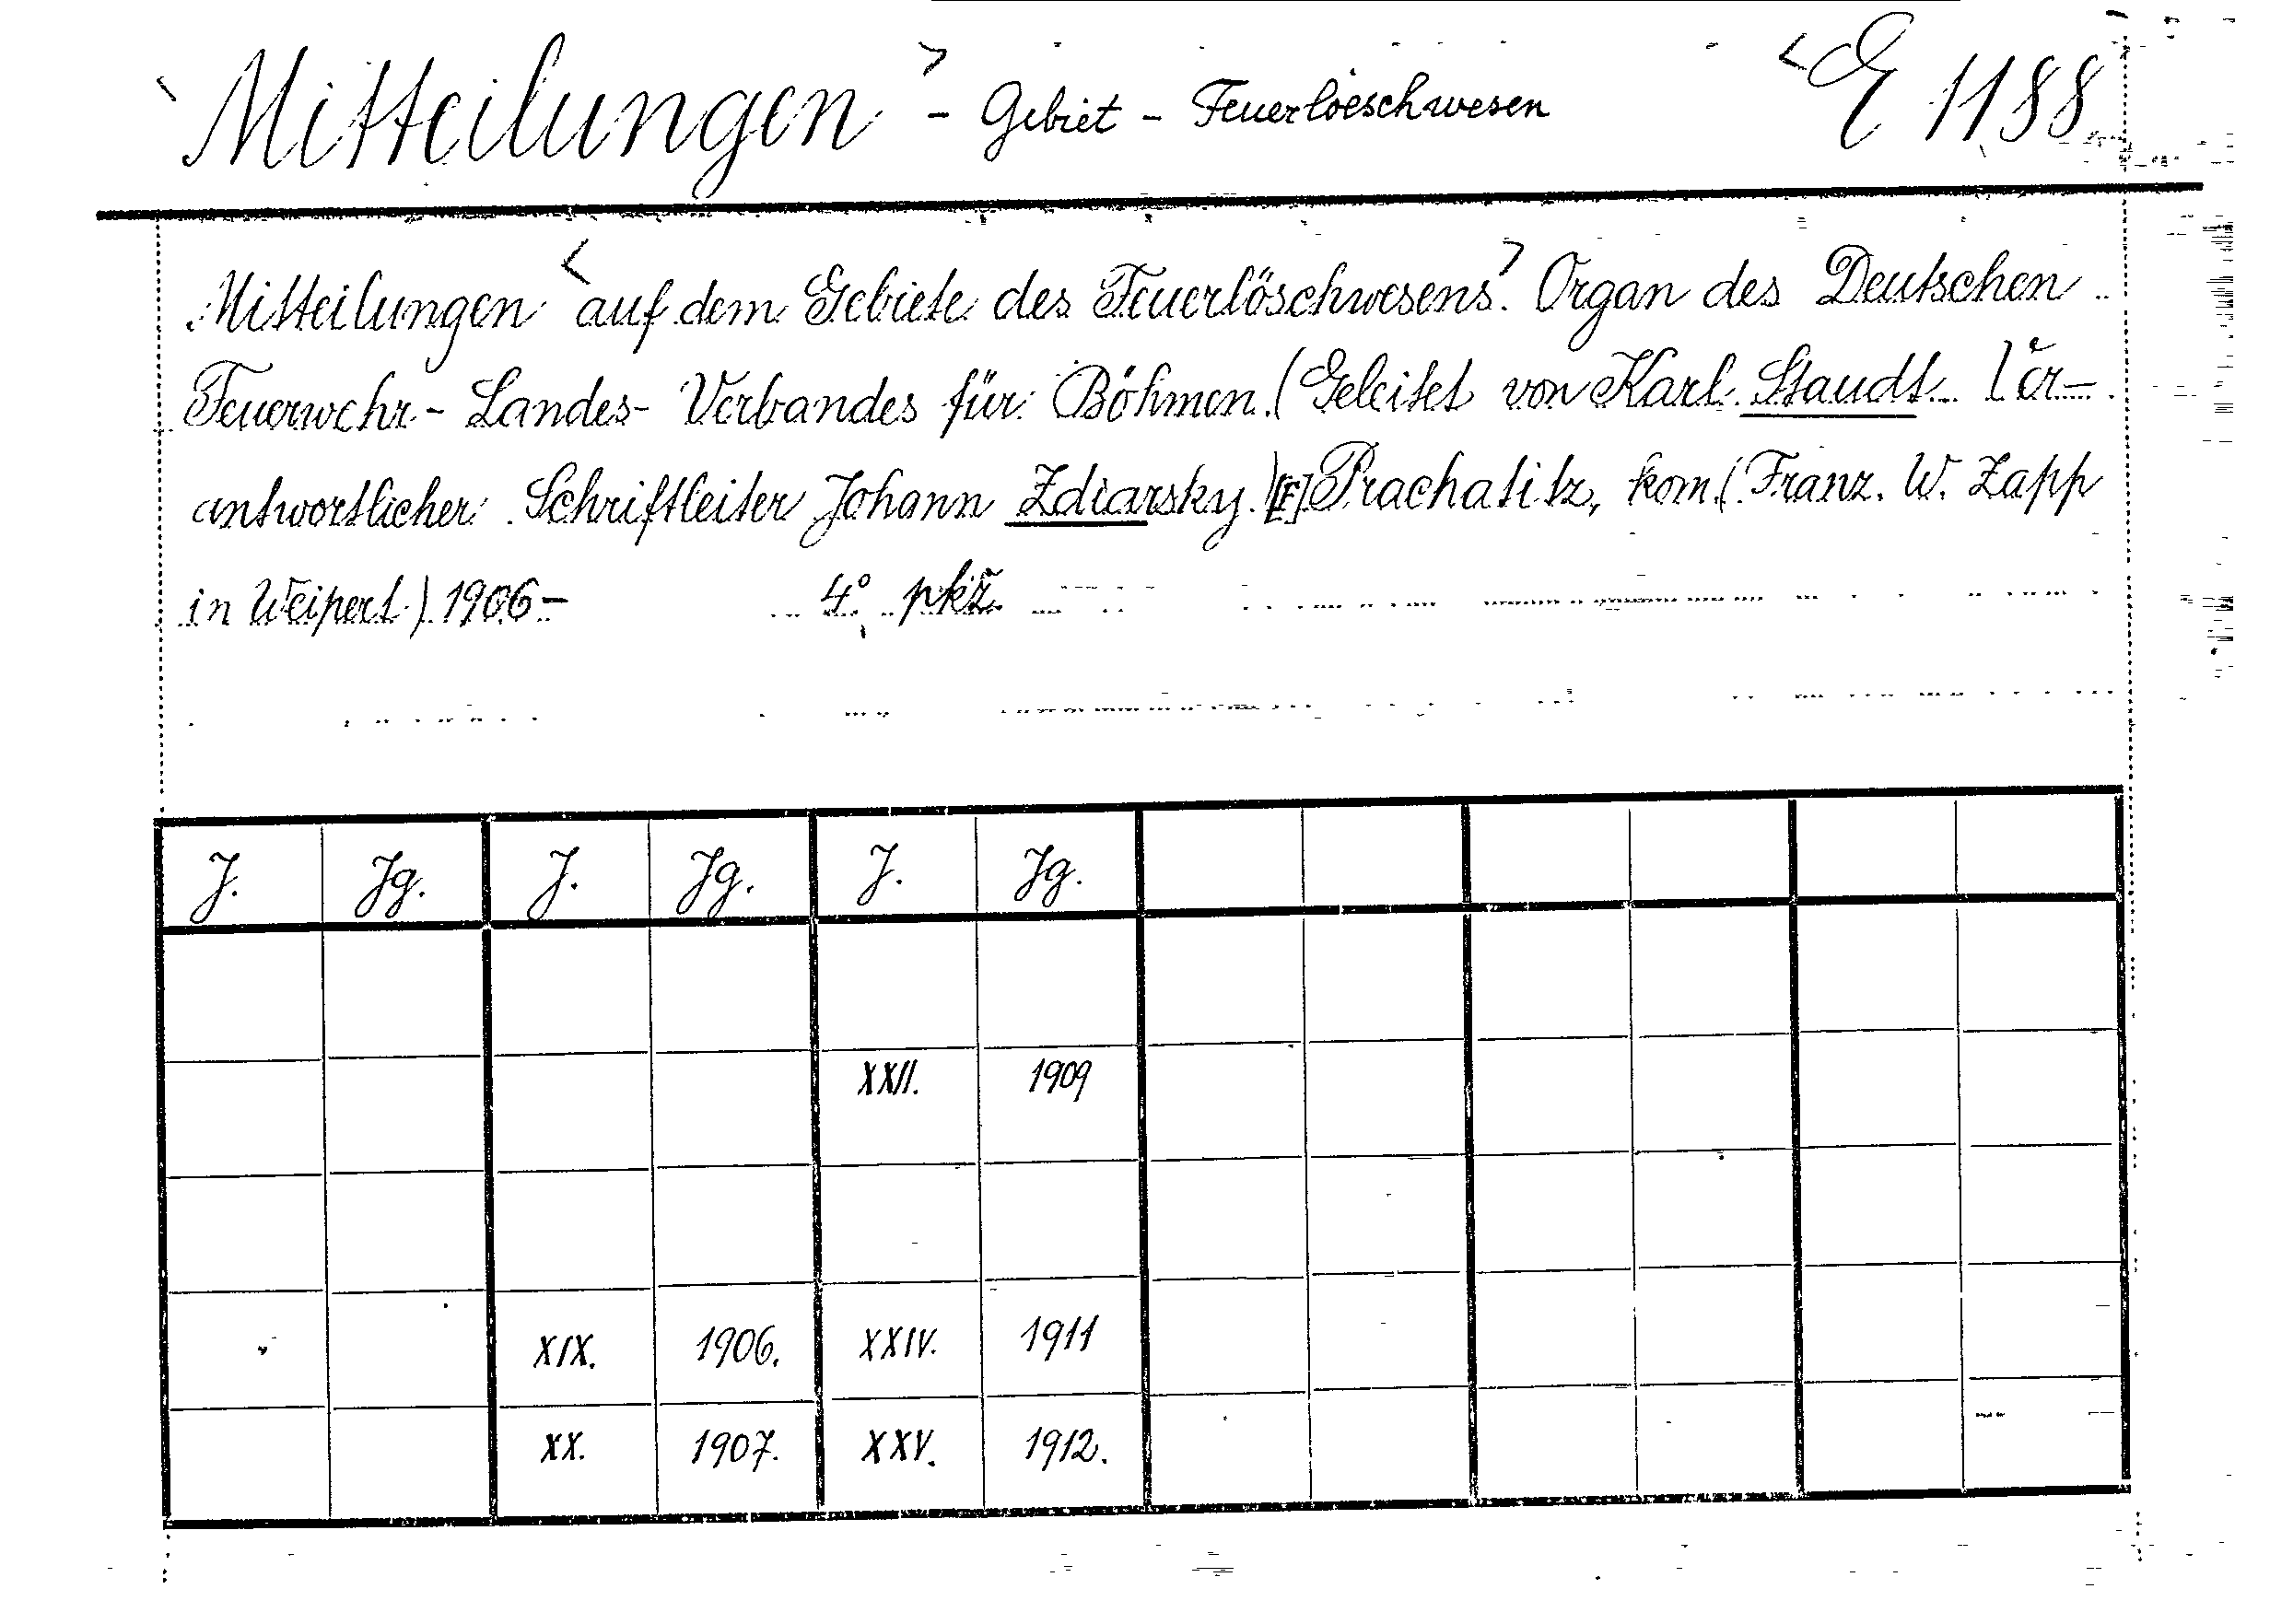 <Mitteilungen> - Gebiet - Feuerloeschwesen <E 1188
Mitteilungen <auf dem Gebiete des Feuerlöschwesens>. Organ des Deutschen
Feuerwehr - Landes - Verbandes für Böhmen. (Geleitet von Karl Staudt. Ver-
antwortlicher Schriftleiter Johann Zdiarsky.) [F] Prachatitz, kom. (Franz. W. Zapp
in Weipert.) 1906 - 4° pkž
J. Jg. J. Jg. J. Jg.
XXII. 1909
XIX. 1906. XXIV. 1911
XX. 1907. XXV. 1912.